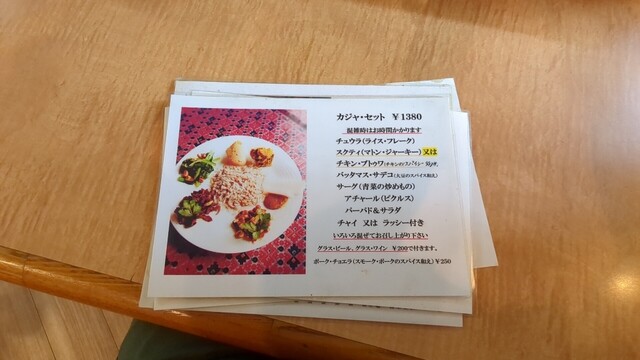 カジャ・セット ￥1380
混雑時はお時間かかります
チュウラ(ライス・フレーク)
スクティ(マトン・ジャーキー)又は
チキン・ブトゥワ(チキンのスパイシー炒め)
バッタマス・サデコ(大豆のスパイス和え)
サーグ(青菜の炒めもの)
アチャール(ピクルス)
パーパド&サラダ
チャイ 又は ラッシー付き
いろいろ混ぜてお召し上がり下さい
グラス・ビール、グラス・ワイン ￥200で付きます。
ポーク・チョエラ(スモーク・ポークのスパイス和え)￥250